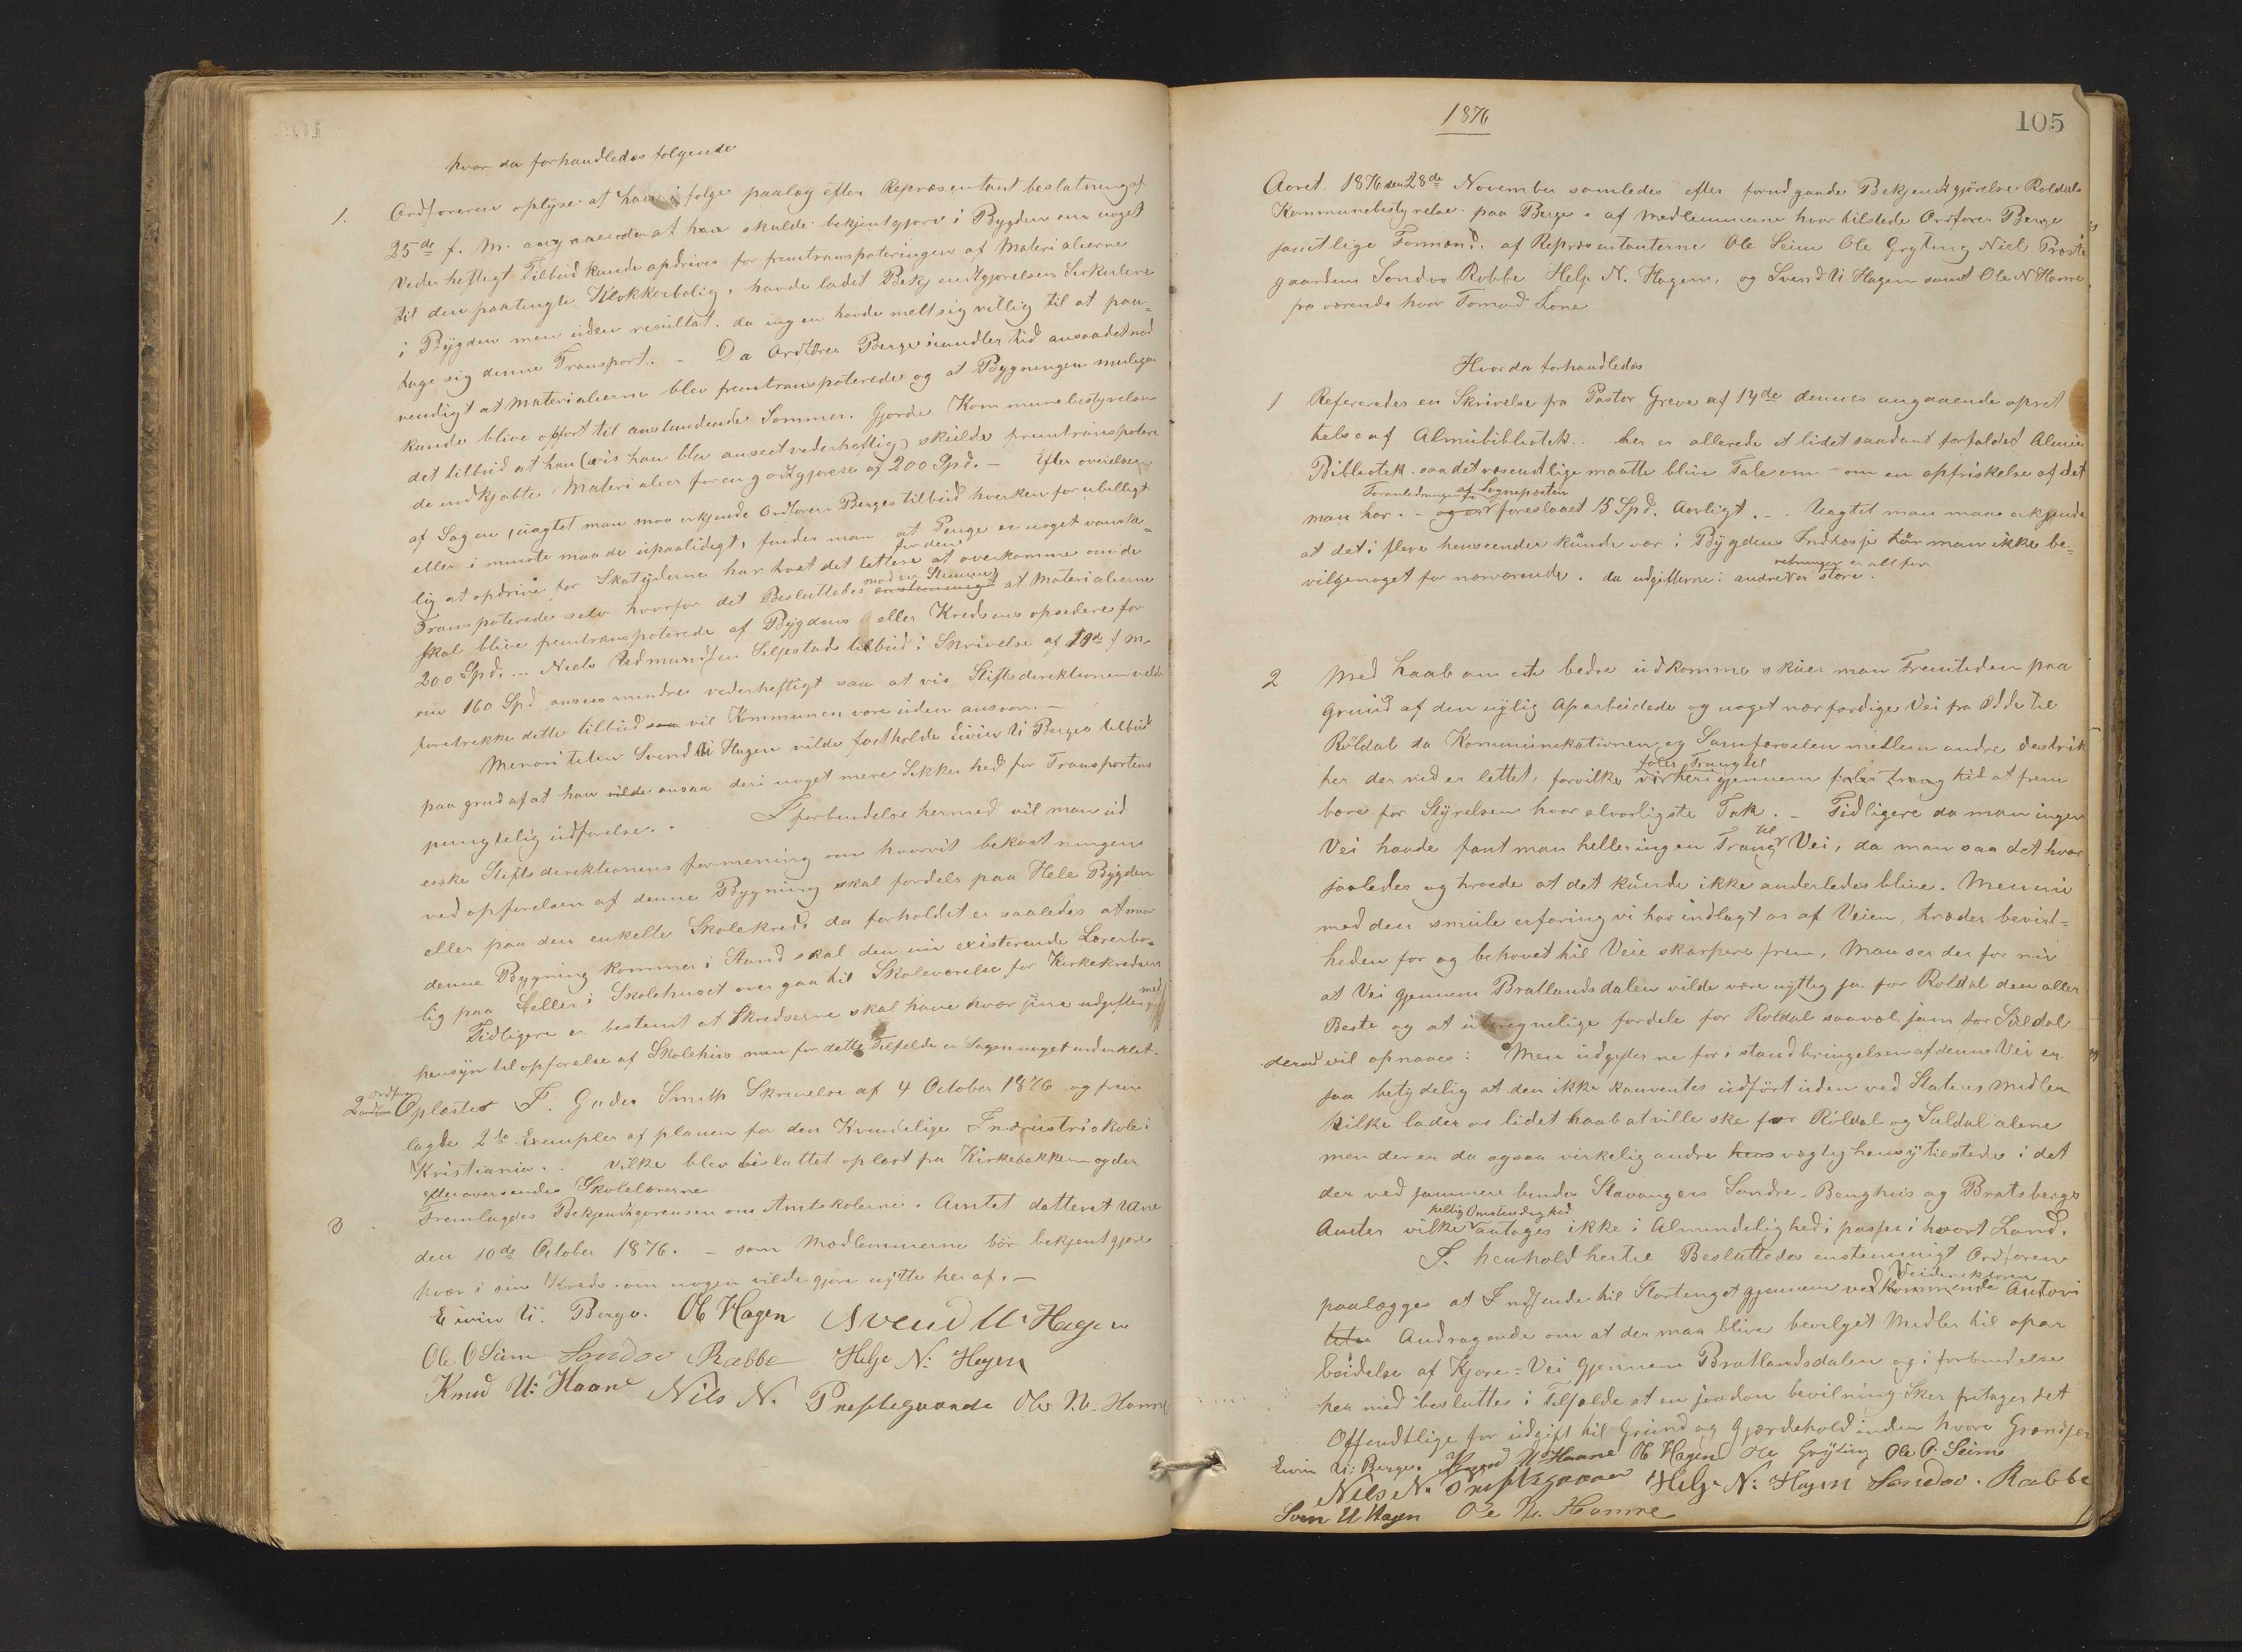 hvor da forhandledes følgende
1. Ordføreren oplyse at han i følge paalæg efter Repræsentant beslutning af
25de f. M. angaaende at han skulde bekjentgjøre i Bygden om noget
Vederheftigt Tilbud kunde opdrives for fremtranspoteringen af Materialierne
til den paatengte Klokkerbolig, havde ladet Bekjendtgjørelsen Serkulere
i Bygden men uden resultat. da ingen havde melt sig villig til at paa-
tage sig denne Transport. - Da Ordfører Berge imidler tid ansaa det nød
vendigt at Materialierne blev fremtranspoterede og at Bygningen muligen
kunde blive opført til anstundende Sommer. Gjorde Kommunebestyrelsen
det tilbud at han (vis han blev anseet vederheftig) skulde fremtranspotere
de indkjøbte Materialier for en godtgjørelse af 200 Spd. - Efter overielse
af Sagen, uagtet man maa erkjende Ordfører Berges tilbud hverken for ubilligt
eller i minste maade upaalidegt, finder man at Penge er noget vanske-
lig at opdrive for Skatyderne har hvat det lettere for dem at overkomme om de
Transpoterede selv hvorfor det Besluttedes enstemmigt mod een Stemme at Materialierne
skal blive fremtranspoterede af Bygdens eller Kredsens opsedere for
200 Spd. ... Niels Aadmundsen Seljestads tilbud i Skrivelse af 19de f. M.
om 160 Spd ansees mindre vederheftigt saa at vis Stiftsdirektionen vilde
foretrekke dette tilbud saa vil Kommunen være uden ansvar. -
Menoriteten Svend U Hagen vilde fastholde Eivin U Berges tilbud
paa grud af at han vilde ansaa deri noget mere Sikkerhed for Transportens
pungtelig udførelse. - I forbindelse hermed vil man ud
eske Stiftsdirektionens formening om hvorvit bekostningen
ved opførelsen af denne Bygning skal fordels paa Hele Bygden
eller paa den enkelte Skolekreds da forholdet er saaledes at naar
denne Bygning kommer i Stand skal den nu existerende Lærerbo-
lig paa eller i Skolehuset over gaa til Skoleværelse for Kirkekredsen
Tidligere er bestemt at Skredserne skal have hver sine udgifter med
hensyn til opførelse af Skolehus men for dette Tilfelde er Sagen noget indviklet.
2 Ordfør Oplæstes F. Gudes Smith Skrivelse af 4 October 1876 og frem
lagde 2de Exempler af planen for den Kvindelige Industriskole i
Kristiania. . vilke blev besluttet oplæst fra Kirkebakken og der
efter oversendes Skolelærerne
3 Fremlagdes Bekjendtgjørensen om Amtskolerne. Amtet datteret
den 10de October 1876. - som Medlemmerne bør bekjentgjøre
hver i sin Kreds om nogen vilde gjøre nytte heraf. -
Eivin U. Berge. Ob Hagen Svend U. Hagen
Ole O Seim Sondov Rabbe Helje N: Hagen
Knud U: Haare Nils N. Prestegaarde Ole N. Hamre
1876
105
Aaret 1876 den 28de November samledes efter forud gaade Bekjendtgjørelse Roldals
Kommunebestyrelse paa Berge. af Medlemmerne hvar tilstede Ordfører Berge
samtlige Formænd. af Repræsentanterne Ole Seim Ole Gryting Niel Præste
gaarden Sondvo Robbe Helje N. Hagen, og Svend U Hagen samt Ole N Hamre
fra værende hvar Tormod Lone
Hvor da forhandledes
1 Refereredes en Skrivelse fra Pastor Greve af 14de dennes angaaende opret
telse af Almubibliotek. her er allerede et lidet saadant forfaldet Almue
Bibliotek saa det væsendtlige maatte blive Tale om - om en opfriskelse af det
man har. - og er Foranledningen af Sognepræsten foreslaaet 15 Spd. Aarligt. - Uagtet man maae erkjende
at det i flere henseender kunde vær i Bygdens Indtræsje tør man ikke be-
vilge noget for nærværende. da udgifterne i andre retninger er alt for store.
2 Med haab om et bedre udkomme skuer man Fremtiden paa
Grund af den nylig Aparbeidede og noget nær færdige Vei fra Odde til
Röldal da Kommunikationen og Samfærselen mellem andre destrik
ter der ved er lettet, forvilke virkeri gjennem føler Trang til at frem
bære for Styrelsen hvor alvorligste Tak. - Tidligere da man ingen
Vei havde fant man heller ingen Trang til Vei, da man saa det hvar
saaledes og troede at det kunde ikke anderledes blive. Men nu
med den smule erfaring vi har indlagt os af Veien, træder bevist-
heden for og behovet til Veie skarpere frem, Man ser der for nu
at Vei gjennem Bratlandsdalen vilde være nyttig ja for Roldal den aller
Beste og at uberegnelige fordele for Roldal saavel som for Suldal
derved vil opnaaes: Men udgifterne for i stand bringelsen af denne Vei er
saa betydelig at den ikke kan ventes udført uden ved Statens Midler
hilke lader os lidet haab at ville ske for Röldal og Suldal alene
men der er da ogsaa virkelig andre hens vegtig hensy tilstede i det
der ved sammen bindes Stavangers Søndre-Benghus og Bratsbergs
Amter vilke heldig Omstendighed antages ikke i Almindelighed i passer i hvort Land.
I henhold hertil Besluttedes enstemmigt Ordføren
paalægges at Indsende til Stortinget gjennem ved Veidirektøren kommende Autori
teter Andragende om at der maa blive bevilget Midler til opar
beidelse af Kjøre-Vei gjennem Bratlandsdalen og i forbindelse
her med besluttes i Tilfælde at en saadan bevilning Sker fritages det
Offendtlige for udgift til Grund og Gjærdehold inden hvore Grændser
Eivin U: Berge. Knud U Haare Ob Hagen Ole Gryting Ole O. Seim
Nils N. Prestegaarer Helje N: Hagen Sondov. Rabbe
Sven U Hagen Ole N. Hamre